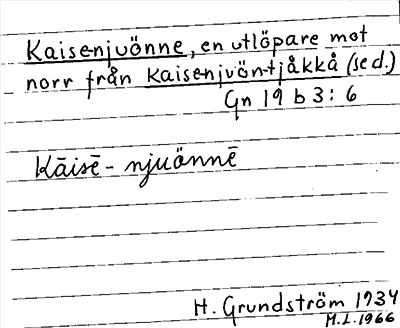 Kaisenjuönne, en utlöpare mot
norr från Kaisenjuön-tjåkkå (se d.)
Gn 19 b 3:6
Kāisē - njuönnē
H. Grundström 1934
M.L. 1966